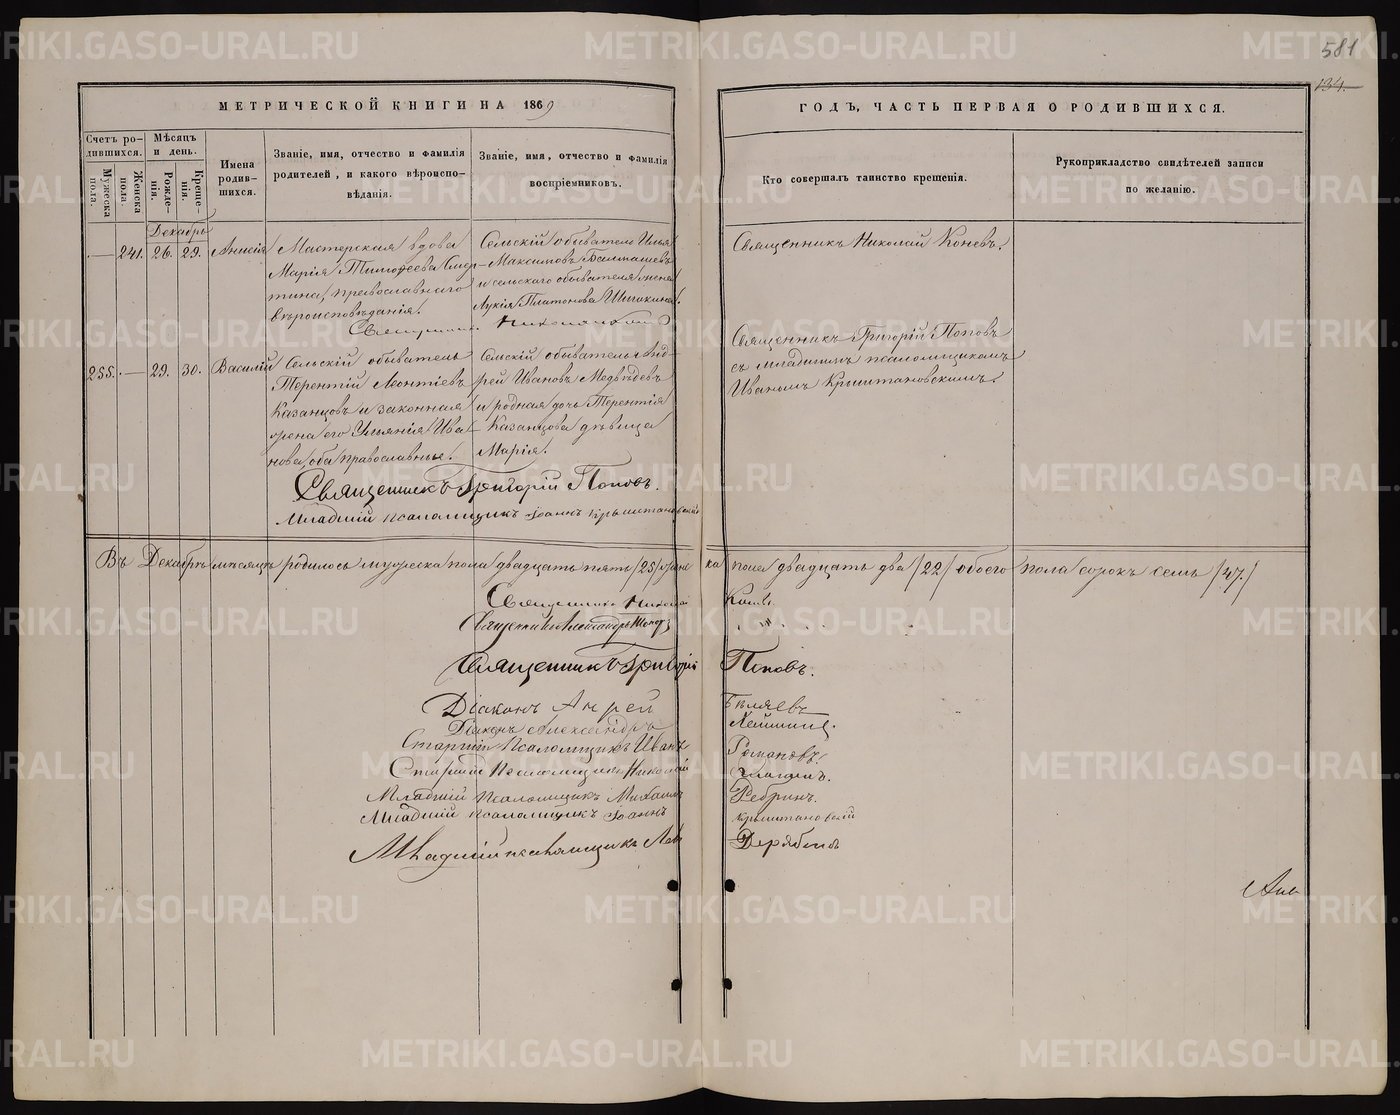 581
134.
МЕТРИЧЕСКОЙ КНИГИ НА 1869
ГОДЪ, ЧАСТЬ ПЕРВАЯ О РОДИВШИХСЯ.
Счетъ родившихся.
Мужеска пола.
Женска пола.
Мѣсяцъ и день.
Рожденія.
Крещенія.
Имена родившихся.
Званіе, имя, отчество и фамилія
родителей, и какого вѣроиспо-
вѣданія.
Званіе, имя, отчество и фамилія
воспріемниковъ.
Кто совершалъ таинство крещенія.
Рукоприкладство свидѣтелей записи
по желанію.
Декабрь
— 241. 26. 29. Анисія
Мастерская вдова
Марія Тимофеева Смер-
тина, православнаго
вѣроисповѣданія.
Сельскій обыватель Илья
Максимовъ Балташевъ
и сельскаго обывателя жена
Лукія Платонова
Священникъ Николай Коневъ.
Священникъ Николай
255. — 29. 30. Василій
Сельскій обыватель
Терентій Леонтіевъ
Казанцовъ и законная
жена его Ульянія Ива-
нова, оба православные.
Сельскій обыватель Анд-
рей Ивановъ Медвѣдевъ
и родная дочь Терентія
Казанцова дѣвица
Марія.
Священникъ Григорій Поповъ
съ младшимъ псаломщикомъ
Иваномъ Крыштановскимъ.
Священникъ Григорій Поповъ.
Младшій псаломщикъ Іоаннъ Крыштановскій
Въ Декабрѣ мѣсяцѣ родилось мужеска пола двадцать пять /25/ женска пола двадцать два /22/ обоего пола сорокъ семь /47./
Священникъ Николай Коневъ
Священникъ Александръ
Священникъ Григорій Поповъ.
Діаконъ Андрей Бѣляевъ
Діаконъ Александръ
Старшій Псаломщикъ Иванъ Романовъ.
Старшій Псаломщикъ Николай
Младшій Псаломщикъ Михаилъ Ребринъ.
Младшій псаломщикъ Іоаннъ Крыштановскій
Младшій псаломщикъ Левъ Дерябинъ
METRIKI.GASO-URAL.RU